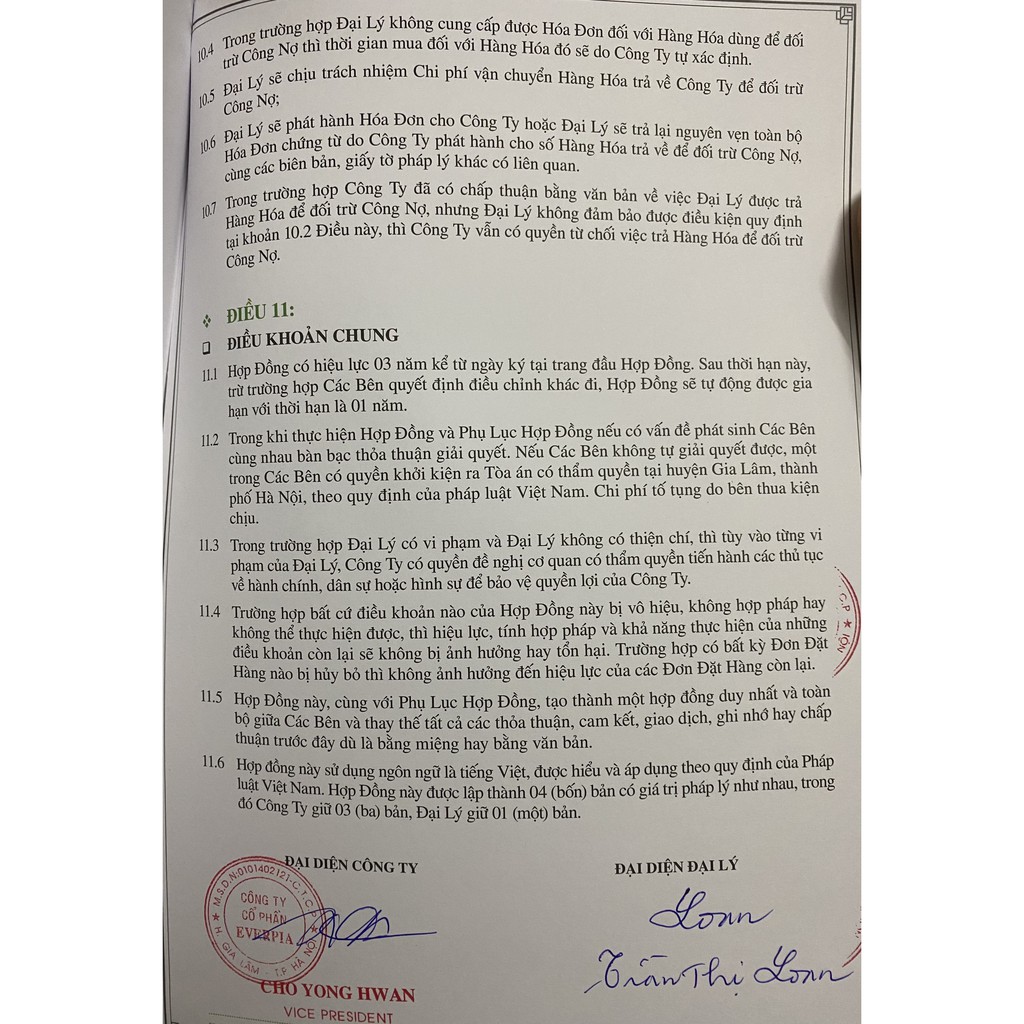 10.4 Trong trường hợp Đại Lý không cung cấp được Hóa Đơn đối với Hàng Hóa dùng để đối
trừ Công Nợ thì thời gian mua đối với Hàng Hóa đó sẽ do Công Ty tự xác định.
10.5 Đại Lý sẽ chịu trách nhiệm Chi phí vận chuyển Hàng Hóa trả về Công Ty để đối trừ
Công Nợ;
10.6 Đại Lý sẽ phát hành Hóa Đơn cho Công Ty hoặc Đại Lý sẽ trả lại nguyên vẹn toàn bộ
Hóa Đơn chứng từ do Công Ty phát hành cho số Hàng Hóa trả về để đối trừ Công Nợ,
cùng các biên bản, giấy tờ pháp lý khác có liên quan.
10.7 Trong trường hợp Công Ty đã có chấp thuận bằng văn bản về việc Đại Lý được trả
Hàng Hóa để đối trừ Công Nợ, nhưng Đại Lý không đảm bảo được điều kiện quy định
tại khoản 10.2 Điều này, thì Công Ty vẫn có quyền từ chối việc trả Hàng Hóa để đối trừ
Công Nợ.
ĐIỀU 11:
ĐIỀU KHOẢN CHUNG
11.1 Hợp Đồng có hiệu lực 03 năm kể từ ngày ký tại trang đầu Hợp Đồng. Sau thời hạn này,
trừ trường hợp Các Bên quyết định điều chỉnh khác đi, Hợp Đồng sẽ tự động được gia
hạn với thời hạn là 01 năm.
11.2 Trong khi thực hiện Hợp Đồng và Phụ Lục Hợp Đồng nếu có vấn đề phát sinh Các Bên
cùng nhau bàn bạc thỏa thuận giải quyết. Nếu Các Bên không tự giải quyết được, một
trong Các Bên có quyền khởi kiện ra Tòa án có thẩm quyền tại huyện Gia Lâm, thành
phố Hà Nội, theo quy định của pháp luật Việt Nam. Chi phí tố tụng do bên thua kiện
chịu.
11.3 Trong trường hợp Đại Lý có vi phạm và Đại Lý không có thiện chí, thì tùy vào từng vi
phạm của Đại Lý, Công Ty có quyền đề nghị cơ quan có thẩm quyền tiến hành các thủ tục
về hành chính, dân sự hoặc hình sự để bảo vệ quyền lợi của Công Ty.
11.4 Trường hợp bất cứ điều khoản nào của Hợp Đồng này bị vô hiệu, không hợp pháp hay
không thể thực hiện được, thì hiệu lực, tính hợp pháp và khả năng thực hiện của những
điều khoản còn lại sẽ không bị ảnh hưởng hay tổn hại. Trường hợp có bất kỳ Đơn Đặt
Hàng nào bị hủy bỏ thì không ảnh hưởng đến hiệu lực của các Đơn Đặt Hàng còn lại.
11.5 Hợp Đồng này, cùng với Phụ Lục Hợp Đồng, tạo thành một hợp đồng duy nhất và toàn
bộ giữa Các Bên và thay thế tất cả các thỏa thuận, cam kết, giao dịch, ghi nhớ hay chấp
thuận trước đây dù là bằng miệng hay bằng văn bản.
11.6 Hợp đồng này sử dụng ngôn ngữ là tiếng Việt, được hiểu và áp dụng theo quy định của Pháp
luật Việt Nam. Hợp Đồng này được lập thành 04 (bốn) bản có giá trị pháp lý như nhau, trong
đó Công Ty giữ 03 (ba) bản, Đại Lý giữ 01 (một) bản.
ĐẠI DIỆN CÔNG TY
ĐẠI DIỆN ĐẠI LÝ
M.S.D.N:0101402121-C.T.C.P
CÔNG TY
CỔ PHẦN
EVERPIA
H. GIA LÂM - T.P HÀ NỘI
Loan
Trần Thị Loan
CHO YONG HWAN
VICE PRESIDENT